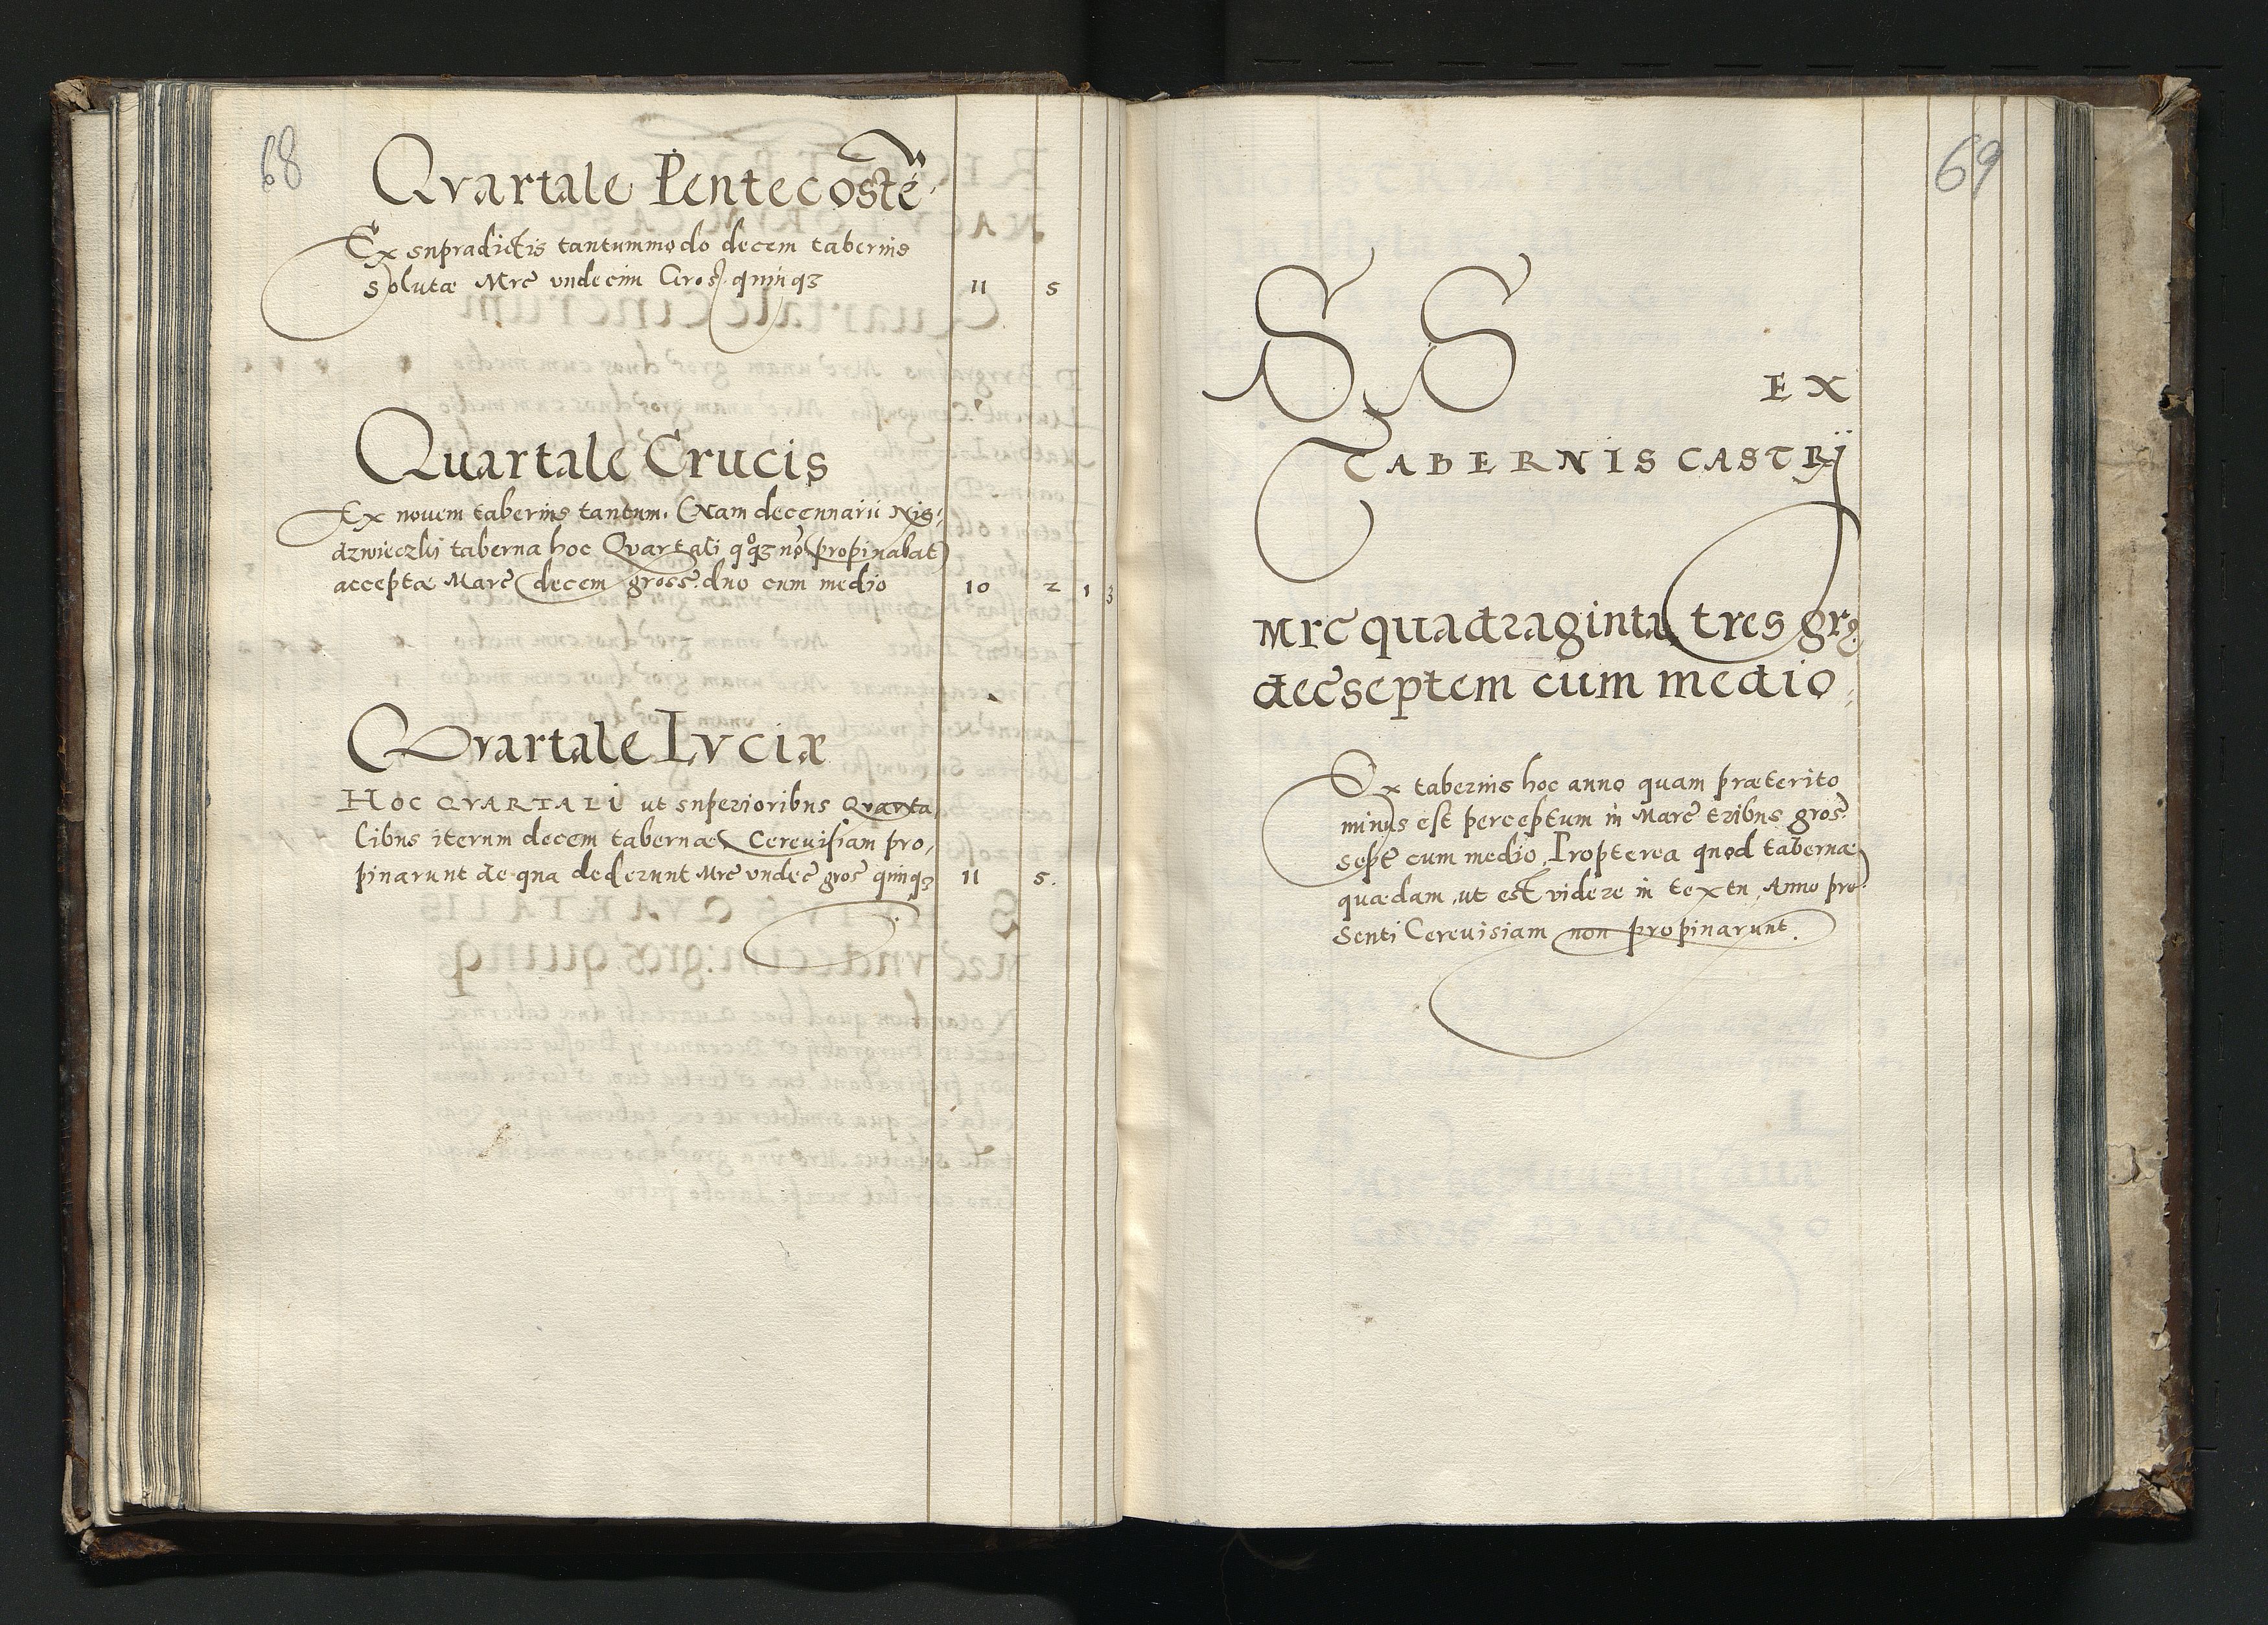 68
Qvartale Pentecostē.
Ex supradictis tantummodo decem tabernis
Solutæ Mrc̄ vndecim Gros: quinqȝ 11 5
Quartale Crucis
Ex nouem tabernis tantum. (Nam decennarii Nie:
dzwieczki taberna hoc Qvartali qᵒqȝ nō propinabat)
acceptæ Marc̄ decem gross: duo cum medio 10 2 1 3
Qvartale Lvciæ
HOC QVARTALI ut superioribus Qvarta,
libus iterum decem tabernæ Cereuisiam pro,
pinarunt de qua dederunt Mrc̄ vndec̄ gros̄ quinqȝ 11 5.
69
S S EX
TABERNIS CASTRIJ
Mrc̄ quadraginta tres grȝ
dec̄septem cum medio,
Ex tabernis hoc anno quam præterito
minus est perceptum in Marc̄ tribus gros̄:
sept̄ cum medio, Propterea quod tabernæ
quædam, ut est videre in textu, Anno præ:
senti Cereuisiam non propinarunt.